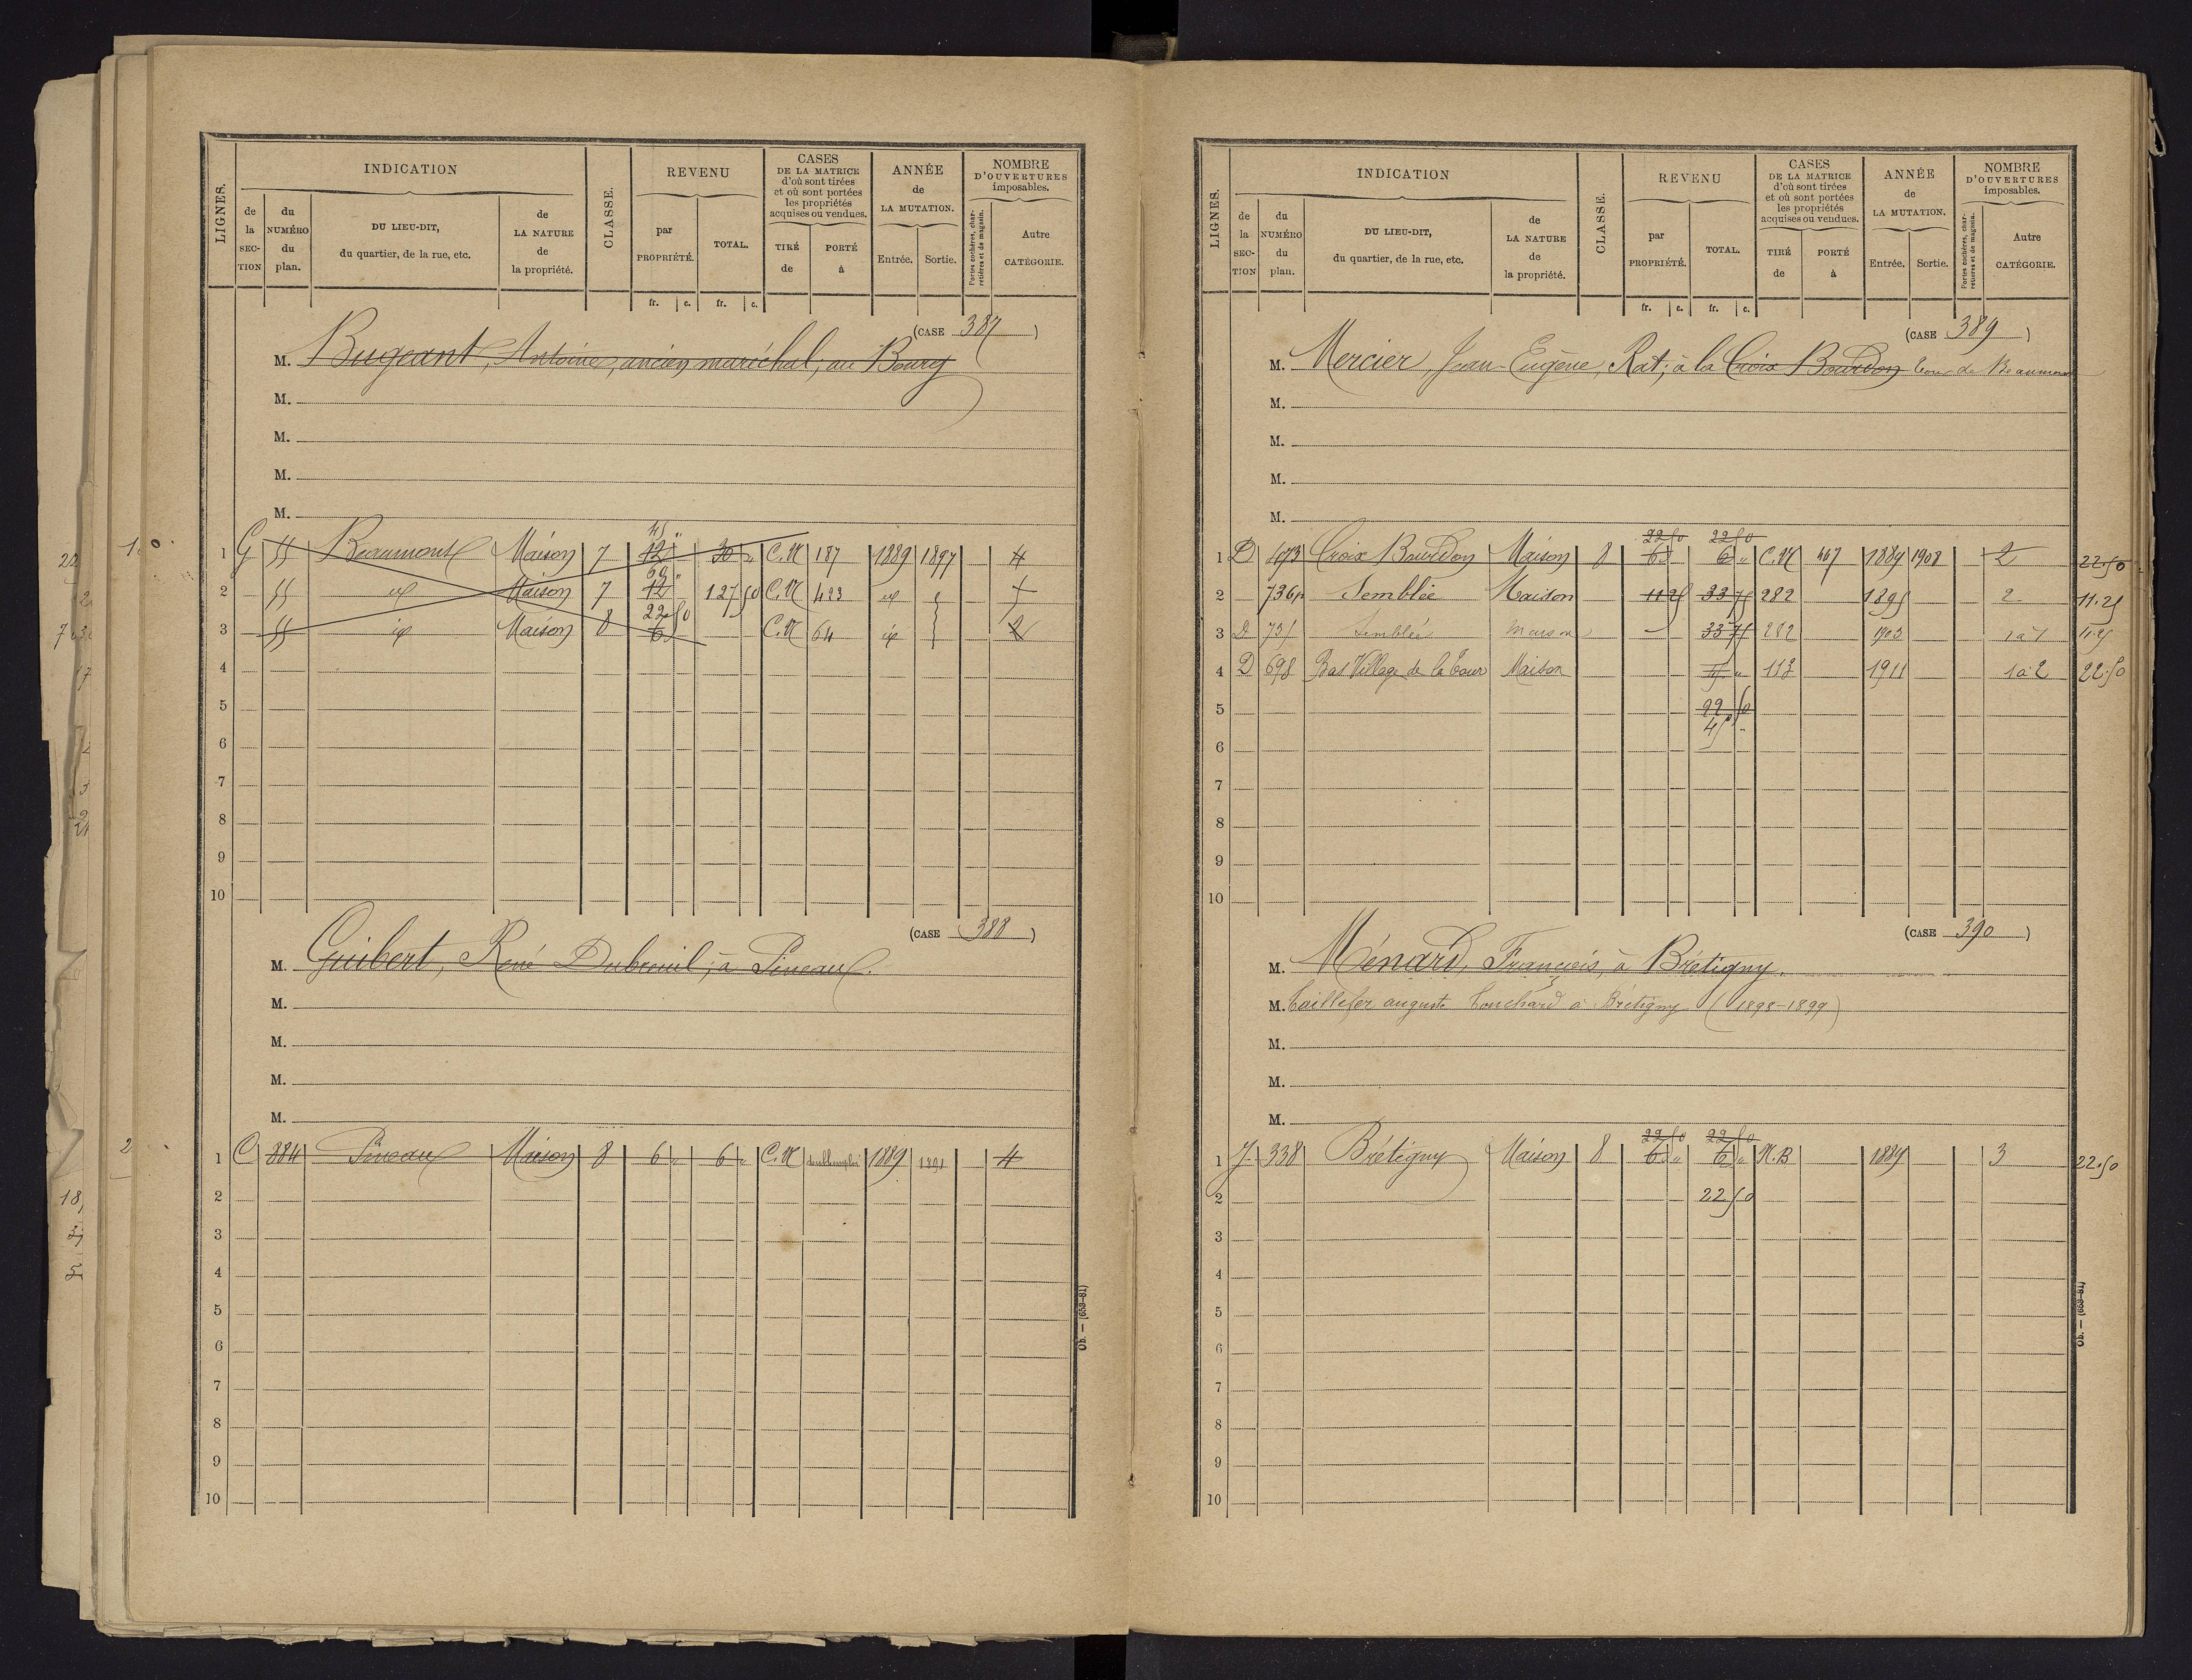 INDICATION
REVENU
CASES
DE LA MATRICE
d'où sont tirées
et où sont portées
les propriétés
acquises ou vendues.
ANNÉE
de
LA MUTATION.
NOMBRE
D'OUVERTURES
imposables.
LIGNES.
de
la
SEC-
TION
du
NUMÉRO
du
plan.
DU LIEU-DIT,
du quartier, de la rue, etc.
de
LA NATURE
de
la propriété.
CLASSE.
par
PROPRIÉTÉ.
TOTAL.
TIRÉ
de
PORTÉ
à
Entrée.
Sortie.
Portes cochères, char-
retières et de magasin.
Autre
CATÉGORIE.
fr. c. fr. c.
(CASE 387)
M. Bugeant, Antoine, ancien maréchal, au Bourg
M.
M.
M.
M.
45 "
1 G 55 Beaumont Maison 7 12 30 " C.M 187 1889 1897 4
60 "
2 55 id Maison 7 12 127 50 C.M 423 id
22 50
3 55 id Maison 8 6 C.M 64 id 2
4
5
6
7
8
9
10
(CASE 388)
M. Guibert, René Dubreuil, à Pineaux.
M.
M.
M.
M.
1 C 884 Pineaux Maison 8 6 " 6 " C.M doubl emploi 1889 1891 4
2
3
4
5
6
7
8
9
10
Ob. — (653-81)
INDICATION
REVENU
CASES
DE LA MATRICE
d'où sont tirées
et où sont portées
les propriétés
acquises ou vendues.
ANNÉE
de
LA MUTATION.
NOMBRE
D'OUVERTURES
imposables.
LIGNES.
de
la
SEC-
TION
du
NUMÉRO
du
plan.
DU LIEU-DIT,
du quartier, de la rue, etc.
de
LA NATURE
de
la propriété.
CLASSE.
par
PROPRIÉTÉ.
TOTAL.
TIRÉ
de
PORTÉ
à
Entrée.
Sortie.
Portes cochères, char-
retières et de magasin.
Autre
CATÉGORIE.
fr. c. fr. c.
(CASE 389)
M. Mercier, Jean-Eugène, Rat, à la Croix Bourdon Tour de Beaumont
M.
M.
M.
M.
22 50 22 50
1 D 693 Croix Bourdon Maison 8 6 6 " C.M 467 1889 1908 2 22.50
2 736p Semblée Maison 11 25 33 75 282 1895 2 11.25
3 D 735 Semblée maison 33 75 282 1903 1 à 1 11.25
4 D 698 Bas Village de la Tour Maison 113 1911 1 à 2 22.50
5 22 50
45 "
6
7
8
9
10
(CASE 390)
M. Ménard, François, à Brétigny.
M. Taillefer auguste Touchard à Brétigny (1898-1899)
M.
M.
M.
22 50 22 50
1 J 338 Brétigny Maison 8 6 " 6 " N.B 1889 3 22.50
2 22 50
3
4
5
6
7
8
9
10
Ob. — (653-81)